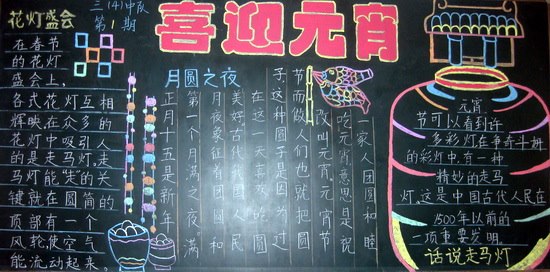 三(4)中队
第1期
喜迎元肖
花灯盛会
在春节
的花灯
盛会上,
各式花灯互相
辉映,在众多的
花灯中吸引人
的是走马灯,走
马灯能“走”的关
键就在圆筒的
顶部有一个
风轮,使空气
能流动起来。
月圆之夜
正月十五是新年
第一个月满之夜。满
月夜象征着团圆和
美好古代我国人民
在这一天喜欢吃圆
子这种圆子是因为过
节而做人们也就把圆
改叫元宵元宵节
吃元宵意思是祝
一家人团圆和睦
元宵
节可以看到许
多彩灯在争奇斗艳
的彩灯中,有一种
精妙的走马
灯。这是中国古代人民在
1500年以前的
一项重要发明。
话说走马灯